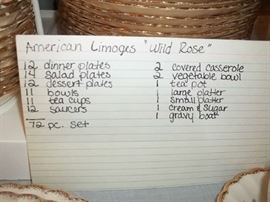 American Limoges "Wild Rose"
12 dinner plates
14 salad plates
12 dessert plates
11 bowls
11 tea cups
12 saucers
72 pc. set
2 covered casserole
2 vegetable bowl
1 tea pot
1 large platter
1 small platter
1 cream & sugar
1 gravy boat